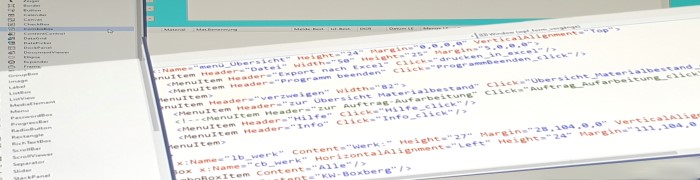 Border
Button
Calendar
Canvas
CheckBox
ComboBox
ContentControl
DataGrid
DatePicker
DockPanel
DocumentViewer
Ellipse
Expander
Frame
GroupBox
Image
Label
ListBox
ListView
MediaElement
Menu
PasswordBox
ProgressBar
RadioButton
Rectangle
RichTextBox
ScrollBar
ScrollViewer
Separator
Slider
StackPanel
:Name="menu_Ubersicht" Height="24" Margin="0,0,0,0" VerticalAlignment="Top">
enuItem Header="Datei" Width="50" Height="25" Margin="5,0,0,0">
<MenuItem Header="Export nach Excel" Click="drucken_in_excel"/>
<MenuItem Header="Programm beenden" Click="ProgrammBeenden_click"/>
MenuItem>
enuItem Header="verzweigen" Width="82">
<MenuItem Header="zur Übersicht Materialbestand" Click="Übersicht_Materialbestand_
<!--<MenuItem Header="zur Auftrag-Aufarbeitung" Click="Auftrag_Aufarbeitung_clic
<MenuItem Header="Hilfe" Click="Hilfe_click"/>
<MenuItem Header="Info" Click="Info_click"/>
MenuItem>
x:Name="lb_werk" Content="Werk:" Height="27" Margin="28,104,0,0" VerticalAlig
Box x:Name="cb_werk" HorizontalAlignment="Left" Height="24" Margin="111,104,0
omboBoxItem Content="Alle"/>
ontent="KW-Boxberg"/>